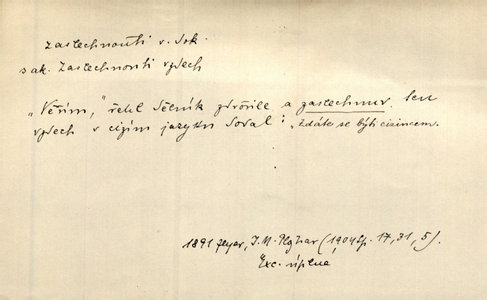 zaslechnouti v. dok.
s ak. Zaslechnouti vzdech
„Věřím,“ řekl Sěčník zdvořile a zaslechnuv ten
vzdech v cizím jazyku dodal: „Zdáte se býti cizincem.
1891 Zeyer, J. M. Plojhar (1904), 17, 31, 5).
Exc. úplná